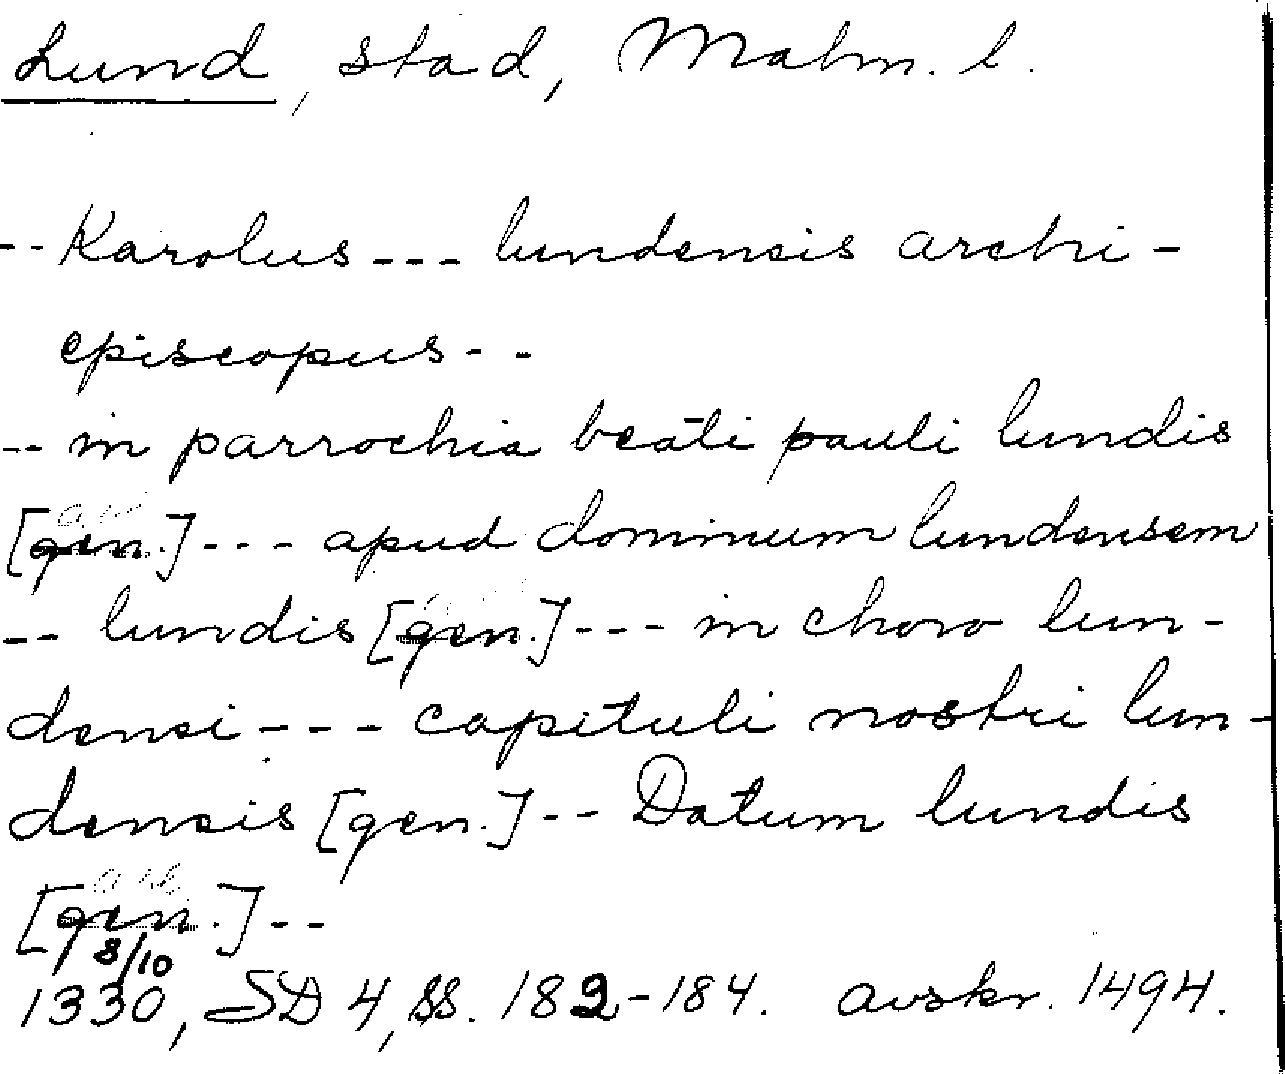 Lund, stad, Malm. l.
-- Karolus --- lundensis archi-
episcopus --
-- in parrochia beati pauli lundis
[gen.] --- apud dominum lundensem
-- lundis [gen.] --- in choro lun-
densi --- capituli nostri lun-
densis [gen.] -- Datum lundis
[gen.] --
8/10
1330, SD 4, ss. 182-184. avskr. 1494.